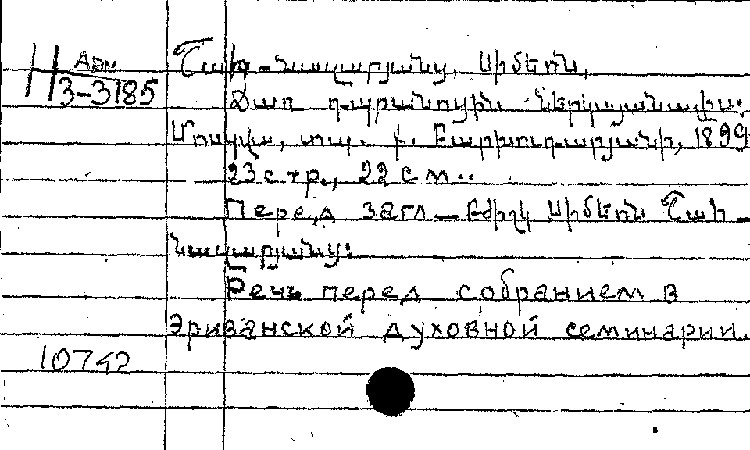 Арм
3-3185
Շահ-Նազարյանց, Սիմեոն,
Ճառ դպրանոցին ներկայանալիս.
Մոսկվա, տպ. Բարխուդարյանի, 1899
23 стр., 22 см..
Перед загл — Բժիշկ Սիմեոն Շահ-
Նազարյանց:
Речь перед собранием в
Эриванской духовной семинарии.
10742